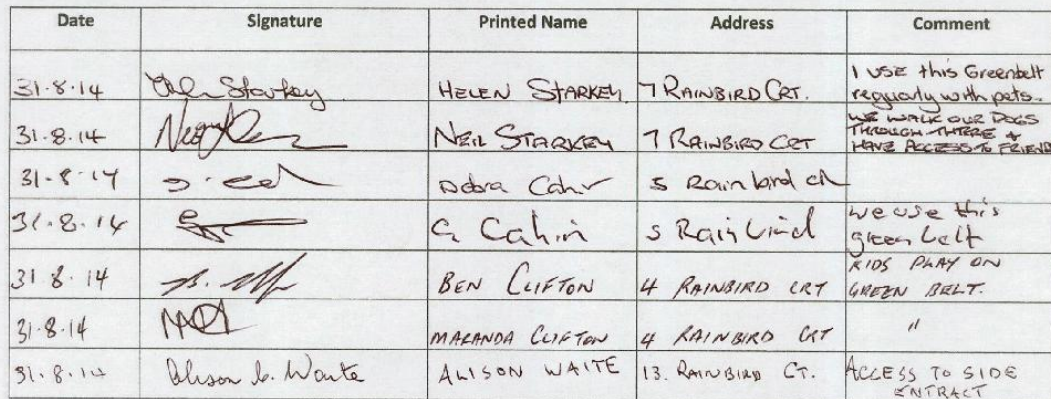 Date Signature Printed Name Address Comment
31.8.14 HELEN STARKEY 7 RAINBIRD CRT. I USE this Greenbelt
reguarly with pets.
31.8.14 NEIL STARKEY 7 RAINBIRD CRT WE WALK OUR DOGS
THROUGH THERE &
HAVE ACCESS TO FRIEND
31-8-14 Debra 5 Rainbird
31.8.14 G 5 we use this
green belt
31.8.14 BEN CLIFTON 4 RAINBIRD CRT KIDS PLAY ON
GREEN BELT.
31.8.14 CLIFTON 4 RAINBIRD CRT "
31.8.14 Alison Waite ALISON WAITE 13. RAINBIRD CT. ACCESS TO SIDE